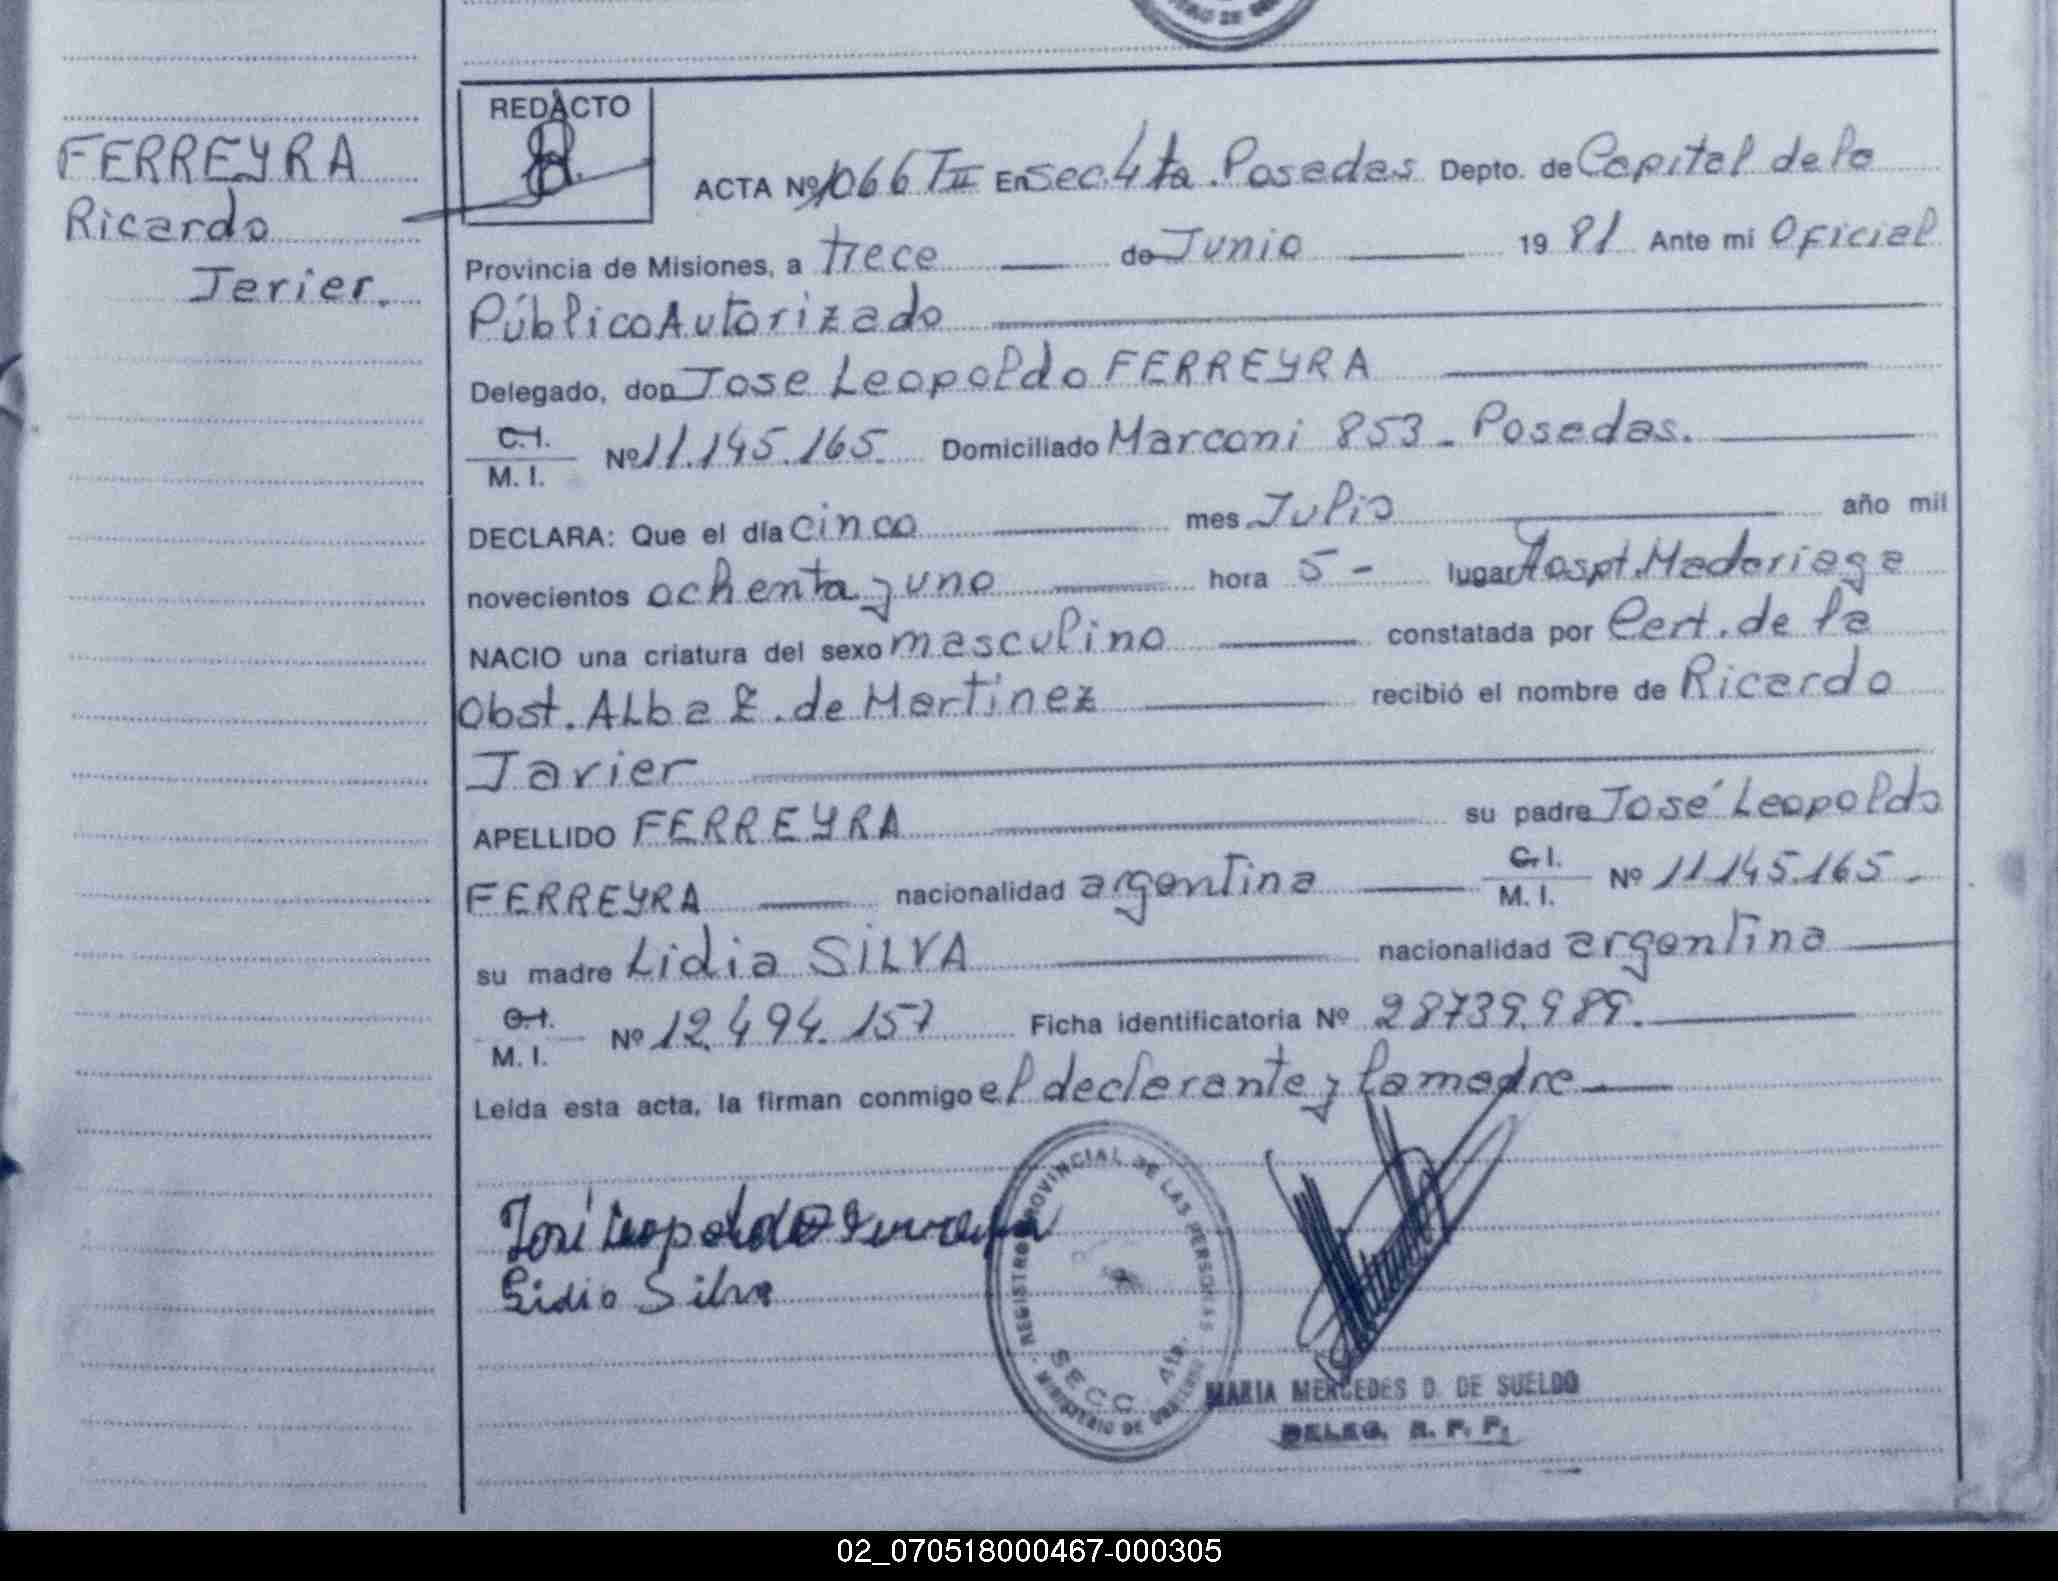 FERREYRA
Ricardo
Javier.
REDACTO
ACTA Nº 1066 TII En Sec. 4ta. Posadas Depto. de Capital de la
Provincia de Misiones, a trece de Junio 1981 Ante mi Oficial
Público Autorizado
Delegado, don Jose Leopoldo FERREYRA
C.I.
M. I. Nº 11.145.165. Domiciliado Marconi 853 - Posadas.
DECLARA: Que el día cinco mes Julio año mil
novecientos ochenta y uno hora 5 - lugar Hospt. Madariaga
NACIO una criatura del sexo masculino constatada por Cert. de la
Obst. ALba E. de Martinez recibió el nombre de Ricardo
Javier
APELLIDO FERREYRA su padre José Leopoldo
FERREYRA nacionalidad argentina C.I.
M. I. Nº 11.145.165 -
su madre Lidia SILVA nacionalidad argentina
C.I.
M. I. Nº 12.494.157 Ficha identificatoria Nº 28739.989.
Leída esta acta, la firman conmigo el declarante y la madre
José Leopoldo Ferreyra
Lidia Silva
REGISTRO PROVINCIAL DE LAS PERSONAS
SECC. 4ta.
MINISTERIO DE GOBIERNO
MARIA MERCEDES D. DE SUELDO
DELEG. R. P. P.
02_070518000467-000305